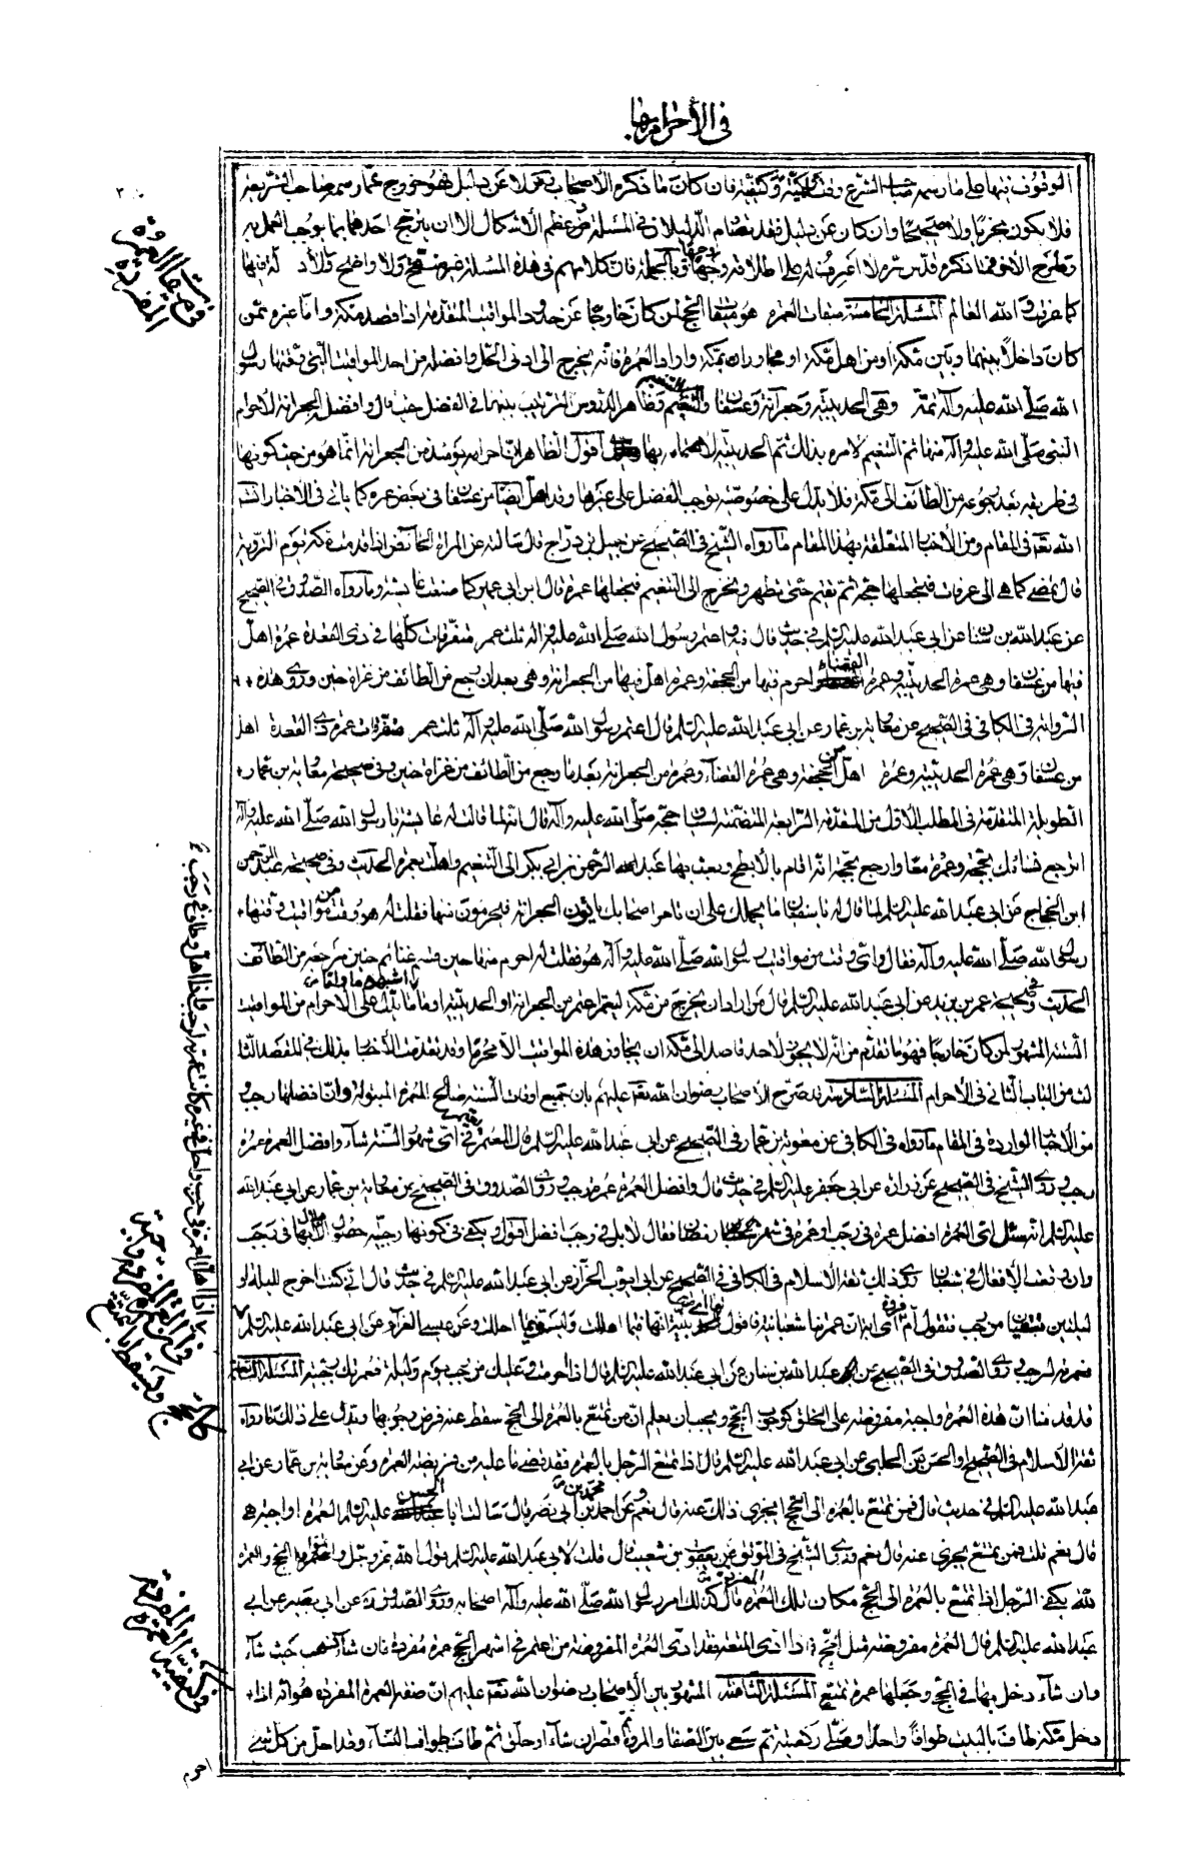 في الأحرام منها
الوقوف فيها على ما رسمه صاحب الشرع وقتا وكمية وكيفية فان كان ما ذكره الاصحاب في محلا عن دليل فهو خروج عما رسمه صاحب الشريعة
فلا يكون مجزيا ولا صحيحا وان كان عن دليل فقد تصادم الدليلان في المسئلة فهو عظم الأشكال الا ان يترجح احدهما بما يوجب العمل به
وتطرح الأخر فما ذكره قدس سره لا اعرف له على اطلاقه وجها وبالجملة فان كلامهم في هذه المسئلة غير منقح ولا واضح ولا دلالة فيها
كما عرفت والله العالم المسئلة الخامسة ميقات العمرة هو ميقات الحج لمن كان خارجا عن حدود المواقيت المتقدمة اذا قصد مكة واما غيره ممن
كان داخلا بينهما وبين مكة او من اهل مكة او مجاورا بمكة واراد العمرة فانه يخرج الى ادنى الحل وافضله من احد المواقيت التي وقتها رسول
الله صلى الله عليه وآله ثمة وهي الحديبية وجعرانة وعسفان والتنعيم وظاهر الدروس الترتيب بينها في الفضل حيث قال وافضل الجعرانة لاحرام
النبي صلى الله عليه وآله منها ثم التنعيم لامره بذلك ثم الحديبية لاهتمامه بها اقول الظاهر ان احرامه يومئذ من الجعرانة انما هو من حيث كونها
في طريقه بعد رجوعه من الطائف الى مكة فلا يدل على خصوصية توجب الفضل على غيرها وقد اهل ايضا من عسفان في بعض عمره كما يأتي في الاخبار انشاء
الله تعالى في المقام ومن الأخبار المتعلقة بهذا المقام ما رواه الشيخ في الصحيح عن جميل بن دراج قال سالته عن المراة الحائض اذا قدمت مكة يوم التروية
قال تمضي كما هي الى عرفات فتجعلها حجة ثم تقيم حتى تطهر وتخرج الى التنعيم فتجعلها عمرة قال ابن ابي عمير كما صنعت عايشة وما رواه الصدوق في الصحيح
عن عبد الله بن سنان عن ابي عبد الله عليه السلم في حديث قال فيه واعتمر رسول الله صلى الله عليه وآله ثلث عمر متفرقات كلها في ذي القعدة عمرة اهل
فيها من عسفان وهي عمرة الحديبية وعمرة القضاء احرم فيها من الجحفة وعمرة اهل فيها من الجعرانة وهي بعد ان رجع من الطائف من غزاة حنين وروى هذه
الرواية في الكافي في الصحيح عن معاوية بن عمار عن ابي عبد الله عليه السلم قال اعتمر رسول الله صلى الله عليه وآله ثلث عمر متفرقات عمرة في ذي القعدة اهل
من عسفان وهي عمرة الحديبية وعمرة اهل من الجحفة وهي عمرة القضاء وعمرة من الجعرانة بعد ما رجع من الطائف من غزاة حنين وفي صحيحة معاوية بن عمار
الطويلة المتقدمة في المطلب الأول من المقدمة الرابعة المتضمنة لسياق حجه صلى الله عليه وآله قال انه لما قالت له عايشة يا رسول الله صلى الله عليه وآله
اترجع نساؤك بحجة وعمرة معا وارجع بحجة انه اقام بالأبطح وبعث بها عبد الرحمن بن ابي بكر الى التنعيم واهلت بعمرة الحديث وفي صحيحة عبد الرحمن
ابن الحجاج عن ابي عبد الله عليه السلم لما قال له يا سفيان ما يحملك على ان تامر اصحابك ياتون الجعرانة فيحرمون منها فقلت له هو وقت من مواقيت وقتها
رسول الله صلى الله عليه وآله فقال واي وقت من مواقيت رسول الله صلى الله عليه وآله هو فقلت له احرم منها حين قسم غنائم حنين مرجعه من الطائف
الحديث وفي صحيحة عمر بن يزيد عن ابي عبد الله عليه السلم قال من اراد ان يخرج من مكة ليعتمر اعتمر من الجعرانة او الحديبية او ما اشبههما واما ما يدل على الأحرام من المواقيت
الستة المشهورة لمن كان خارجا فهو ما تقدم من انه لا يجوز لاحد قاصد الى مكة ان يجاوز هذه المواقيت الا محرما وقد تقدمت الأخبار بذلك في المقصد الثا
لث من الباب الثاني في الأحرام المسئلة السادسة قد صرح الأصحاب رضوان الله تعالى عليهم بان جميع اوقات السنة صالح للعمرة المبتولة وان افضلها رجب
من الأخبار الواردة في المقام ما رواه في الكافي عن معوية بن عمار في الصحيح عن ابي عبد الله عليه السلم قال المعتمر يعتمر في اي شهور السنة شاء وافضل العمرة عمرة
رجب وروى الشيخ في الصحيح عن زرارة عن ابي جعفر عليه السلم في حديث قال وافضل العمرة عمرة رجب وروى الصدوق في الصحيح عن معاوية بن عمار عن ابي عبد الله
عليه السلم انه سئل اي العمرة افضل عمرة في رجب او عمرة في شهر رمضان فقال لا بل في رجب افضل اقول ويكفي في كونها رجبية حصول الاهلال بها في رجب
وان وقعت الأفعال في شعبان روى ذلك ثقة الاسلام في الكافي في الصحيح عن ابي ايوب الخزاز عن ابي عبد الله عليه السلم في حديث قال اني كنت اخرج لليلة او
لليلتين تبقيان من رجب فتقول ام فروة اي ابه ان عمرتنا شعبانية فاقول لها اي بنية انها فيما اهللت وليست فيما احللت وعن عيسى الفراء عن ابي عبد الله عليه السلم
فعمرته لرجب وروى الصدوق في الصحيح عن عبد الله بن سنان عن ابي عبد الله عليه السلم قال اذا احرمت وعليك من رجب يوم وليلة فعمرتك رجبية المسئلة السابعة
قد قدمنا ان هذه العمرة واجبة مفروضة على الخلق كوجوب الحج ويجب ان يعلم ان من تمتع بالعمرة الى الحج سقط عنه فرض وجوبها ويدل على ذلك ما رواه
ثقة الأسلام في الصحيح او الحسن عن الحلبي عن ابي عبد الله عليه السلم قال اذا تمتع الرجل بالعمرة فقد قضى ما عليه من فريضة العمرة وعن معاوية بن عمار عن ابي
عبد الله عليه السلم في حديث قال فمن تمتع بالعمرة الى الحج ايجزي ذلك عنه قال نعم وعن احمد بن محمد بن ابي نصر قال سالت ابا الحسن عليه السلم العمرة اواجبة هي
قال نعم قلت فمن تمتع يجزي عنه قال نعم وروى الشيخ في الموثق عن يعقوب بن شعيب قال قلت لابي عبد الله عليه السلم قول الله عز وجل واتموا الحج والعمرة
لله يكفي الرجل اذا تمتع بالعمرة الى الحج مكان تلك العمرة المفردة قال كذلك امر رسول الله صلى الله عليه وآله اصحابه وروى الصدوق عن ابي بصير عن ابي
عبد الله عليه السلم قال العمرة مفروضة مثل الحج فاذا ادى المتعة فقد ادى العمرة المفروضة من اعتمر في اشهر الحج عمرة مفردة فان شاء ذهب حيث شاء
وان شاء دخل بها في الحج وجعلها عمرة تمتع المسئلة الثامنة المشهور بين الأصحاب رضوان الله تعالى عليهم ان صفة العمرة المفردة هو انه اذا
دخل مكة طاف بالبيت طوافا واحدا وصلى ركعتيه ثم سعى بين الصفا والمروة ثم قصر ان شاء او حلق ثم طاف طواف النساء وقد احل من كل شيء
في ميقات العمرة
المفردة
احرم